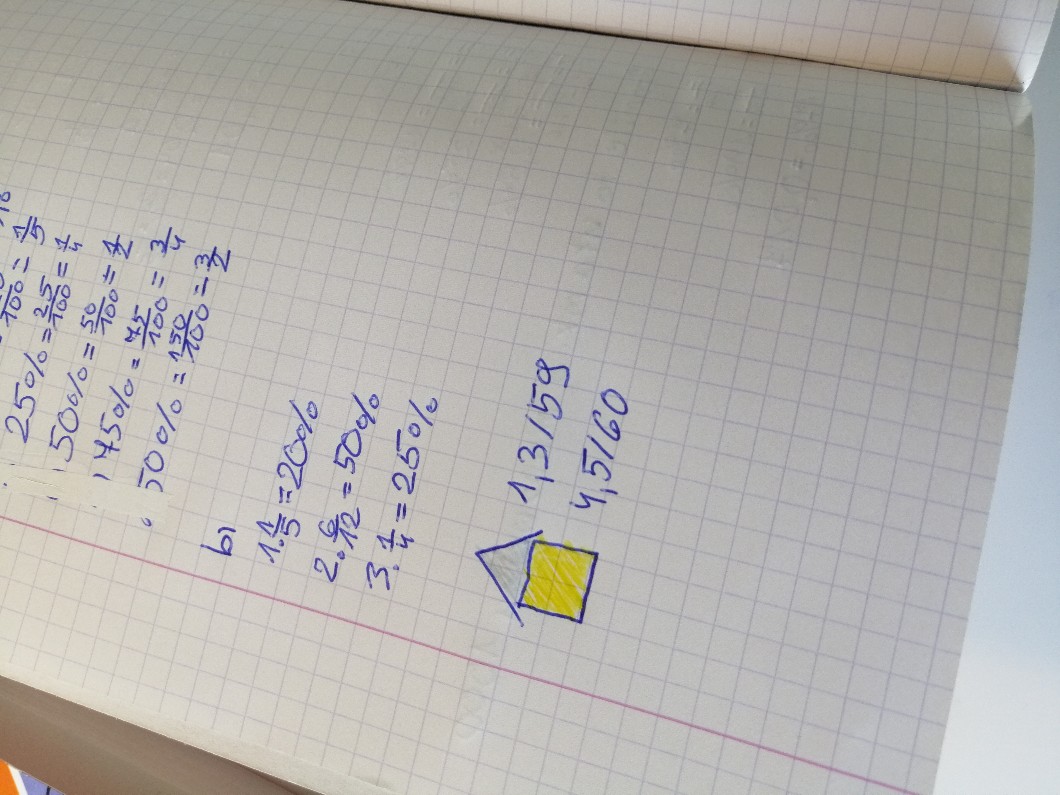 25% = 25/100 = 1/4
50% = 50/100 = 1/2
75% = 75/100 = 3/4
50% = 150/100 = 3/2
b)
1. 1/5 = 20%
2. 6/12 = 50%
3. 1/4 = 25%
1,3/159
4,5/160